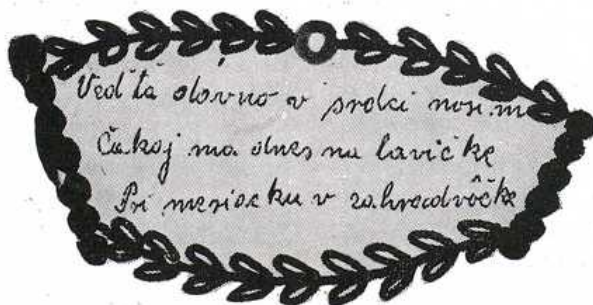 Veď ťa dávno v srdci nosim
Čakaj ma dnes na lavičke
Pri mesiacku v zahradvôčke